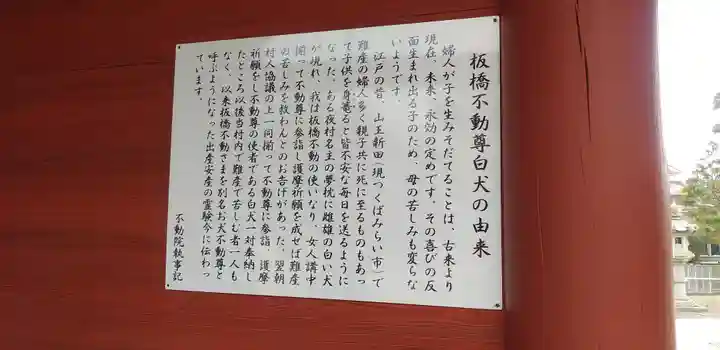 板橋不動尊白犬の由来
婦人が子を生みそだてることは、古来より
現在、未来、永劫の定めです。その喜びの反
面生まれ出る子のため、母の苦しみも変らな
いようです。
江戸の昔、山王新田(現つくばみらい市)で
難産の婦人多く親子共に死に至るものもあっ
て子供を身篭ると皆不安な毎日を送るように
なった。ある夜村名主の夢枕に雌雄の白い犬
が現れ、我は板橋不動の使いなり、女人講中
揃って不動尊に参詣し護摩祈願を成せば難産
の苦しみを救わんとのお告げがあった。翌朝
村人協議の上一同揃って不動尊に参詣、護摩
祈願をし不動尊の使者である白犬一対奉納し
たところ以後当村内で難産で苦しむ者一人も
なく、以来板橋不動さまを別名お犬不動尊と
呼ぶようになった出産安産の霊験今に伝わっ
ています。
不動院執事記